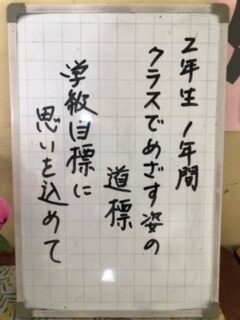 2年生 1年間
クラスでめざす姿の
道標
学級目標に
思いを込めて